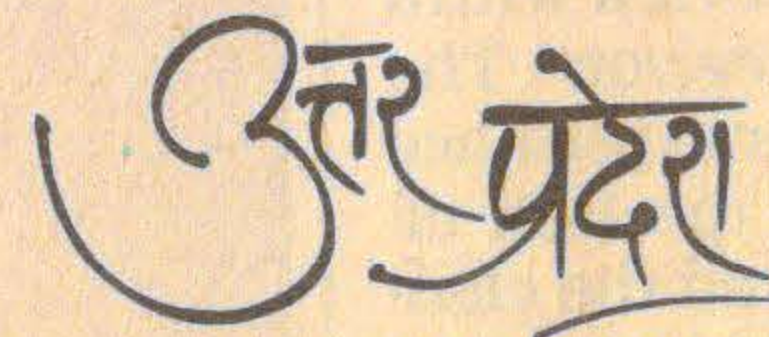 उत्तर प्रदेश